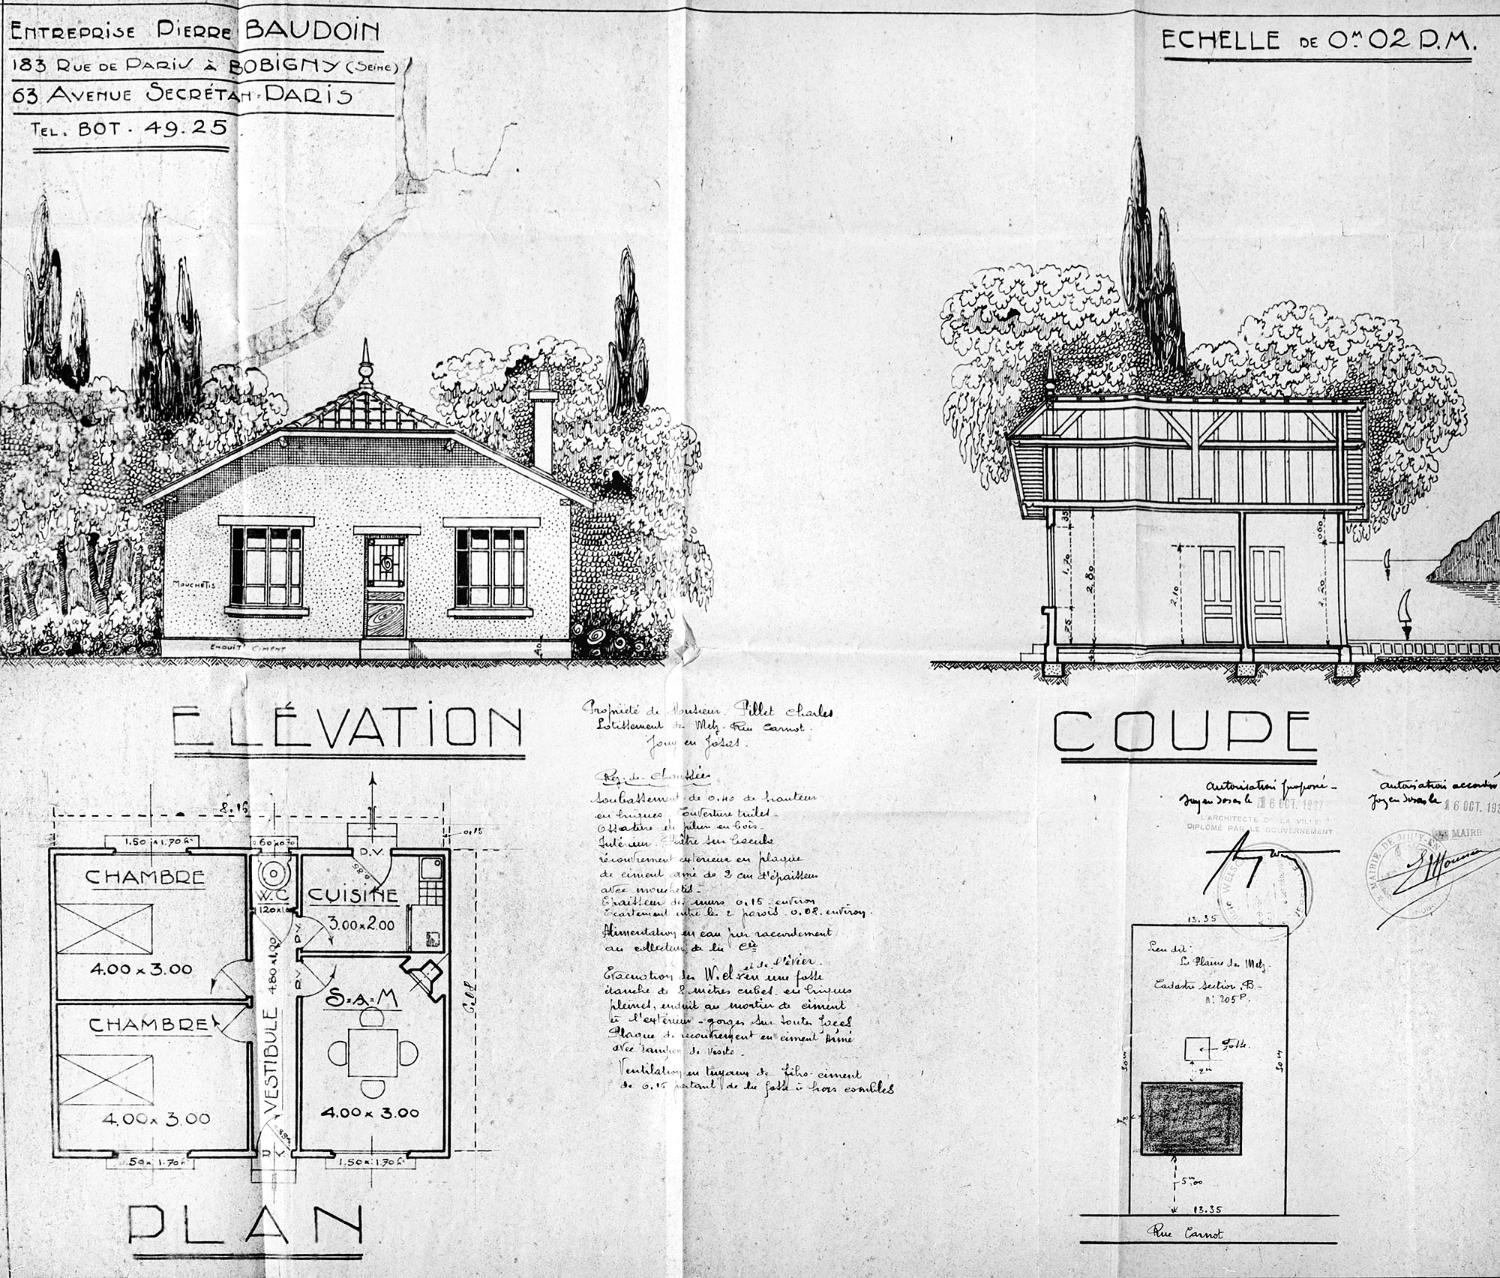 ENTREPRISE PIERRE BAUDOIN
183 RUE DE PARIS À BOBIGNY (Seine)
63 AVENUE SECRÉTAN · PARIS
TEL. BOT - 49.25
ECHELLE DE 0M 02 D.M.
MOUCHETIS
ENDUIT CIMENT
1.70
2.80
2.10
ELÉVATION
COUPE
Propriété de Monsieur Pillet Charles
Lotissement de Metz - Rue Carnot.
Jouy en Josas.
Rez-de-Chaussée
Soubassement de 0.40 de hauteur
en briques. Couverture tuiles.
Ossature et pilier en bois.
Intérieur. Plâtre sur bacula
recouvrement extérieur en plaque
de ciment armé de 2 cm d'épaisseur
avec mouchetis -
Epaisseur des murs 0.15 environ
Ecartement entre les 2 parois. 0.08. environ.
Alimentation en eau par raccordement
au collecteur de la Cie
Evacuation des W.C. et de l'évier en une fosse
étanche de 2 mètres cubes. en briques
pleines, enduit au mortier de ciment
à l'extérieur - gorges sur toutes faces
Plaque de recouvrement en ciment armé
avec tampon de visite.
Ventilation en tuyaux de fibro-ciment
de 0.15 partant de la fosse à hors combles
Autorisation proposée -
Jouy en Josas le 6 OCT.
L'ARCHITECTE DE LA VILLE
DIPLÔMÉ PAR LE GOUVERNEMENT
Autorisation accordée
Jouy en Josas le 16 OCT.
MAIRE
8.15
0.15
1.50 x 1.70 h
60 x 0.70
D.V.
CHAMBRE
W.C
CUISINE
120 x 1.00
3.00 x 2.00
4.00 x 3.00
P.V.
P.V.
S-A-M
CHAMBRE
VESTIBULE
4.80 x 1.20
4.00 x 3.00
4.00 x 3.00
P.V.
1.50 x 1.70 h
1.50 x 1.70 h
PLAN
13.35
Lieu dit:
La Plaine de Metz.
Cadastre Section. B.
n° 205 P.
Fosse.
30m
30m
5m00
13.35
Rue Carnot